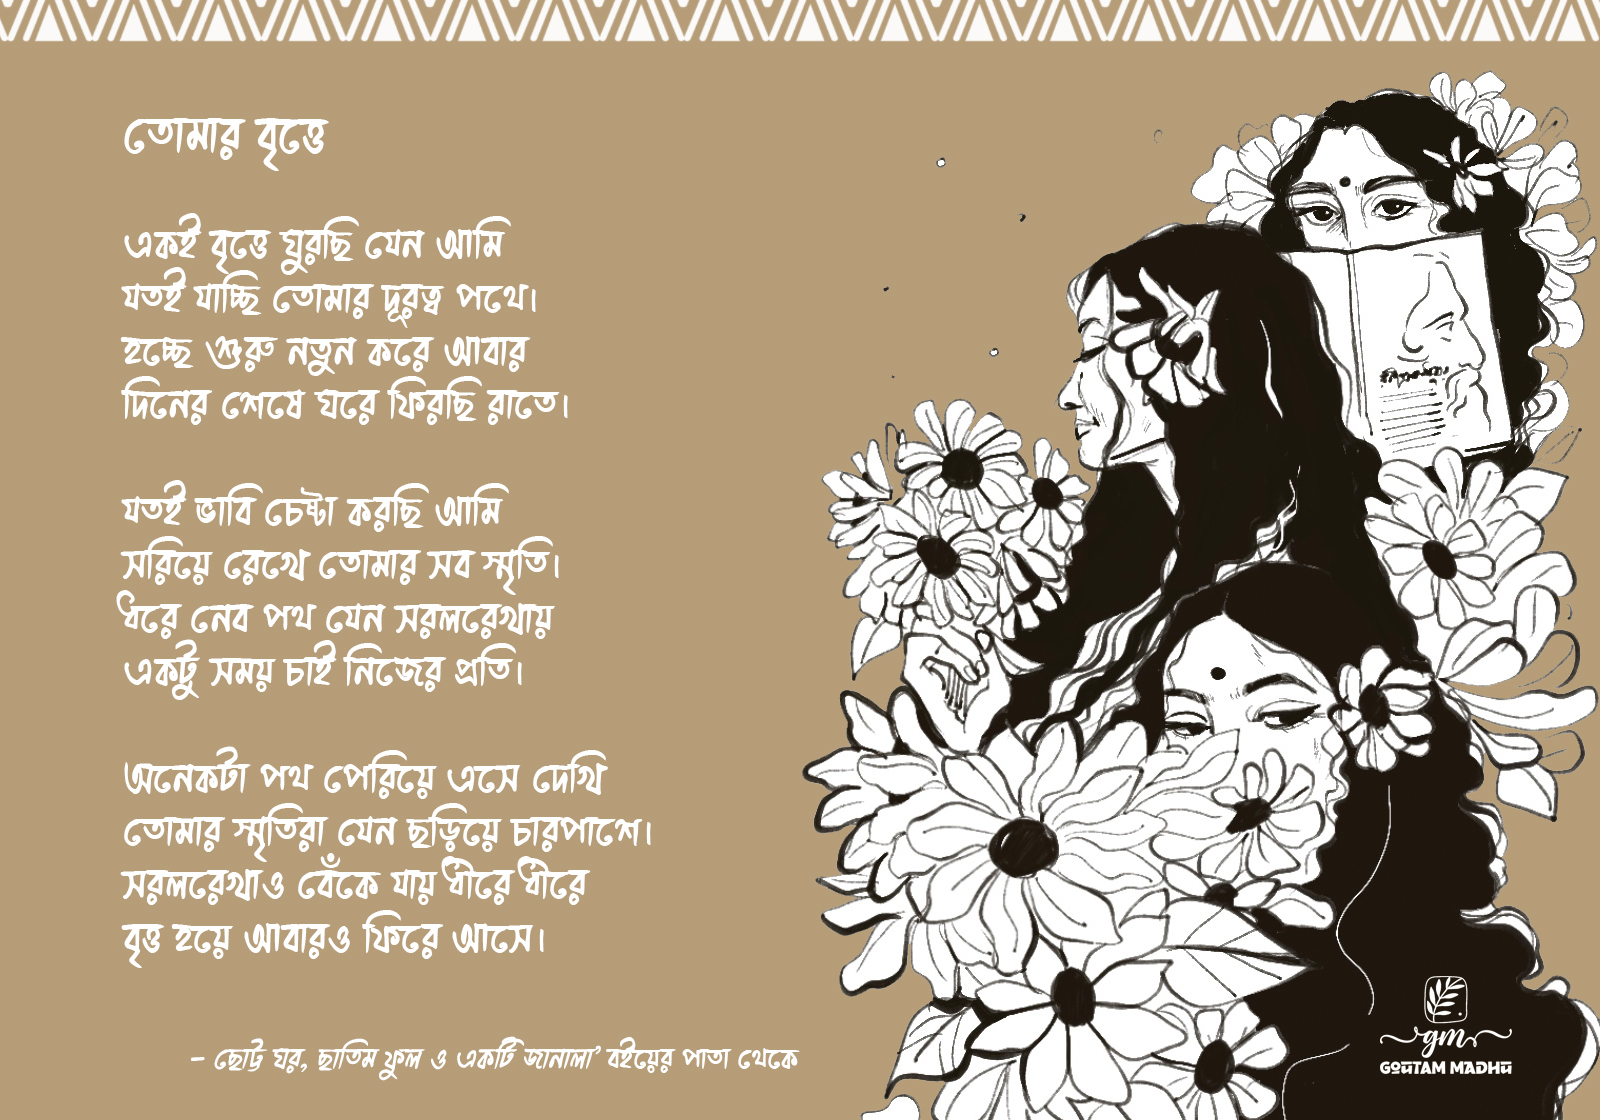 তোমার বৃত্তে
একই বৃত্তে ঘুরছি যেন আমি
যতই যাচ্ছি তোমার দূরত্ব পথে।
হচ্ছে শুরু নতুন করে আবার
দিনের শেষে ঘরে ফিরছি রাতে।
যতই ভাবি চেষ্টা করছি আমি
সরিয়ে রেখে তোমার সব স্মৃতি।
ধরে নেব পথ যেন সরলরেখায়
একটু সময় চাই নিজের প্রতি।
অনেকটা পথ পেরিয়ে এসে দেখি
তোমার স্মৃতিরা যেন ছড়িয়ে চারপাশে।
সরলরেখাও বেঁকে যায় ধীরে ধীরে
বৃত্ত হয়ে আবারও ফিরে আসে।
– ছোট্ট ঘর, ছাতিম ফুল ও একটি জানালা’ বইয়ের পাতা থেকে
gm
GOUTAM MADHU